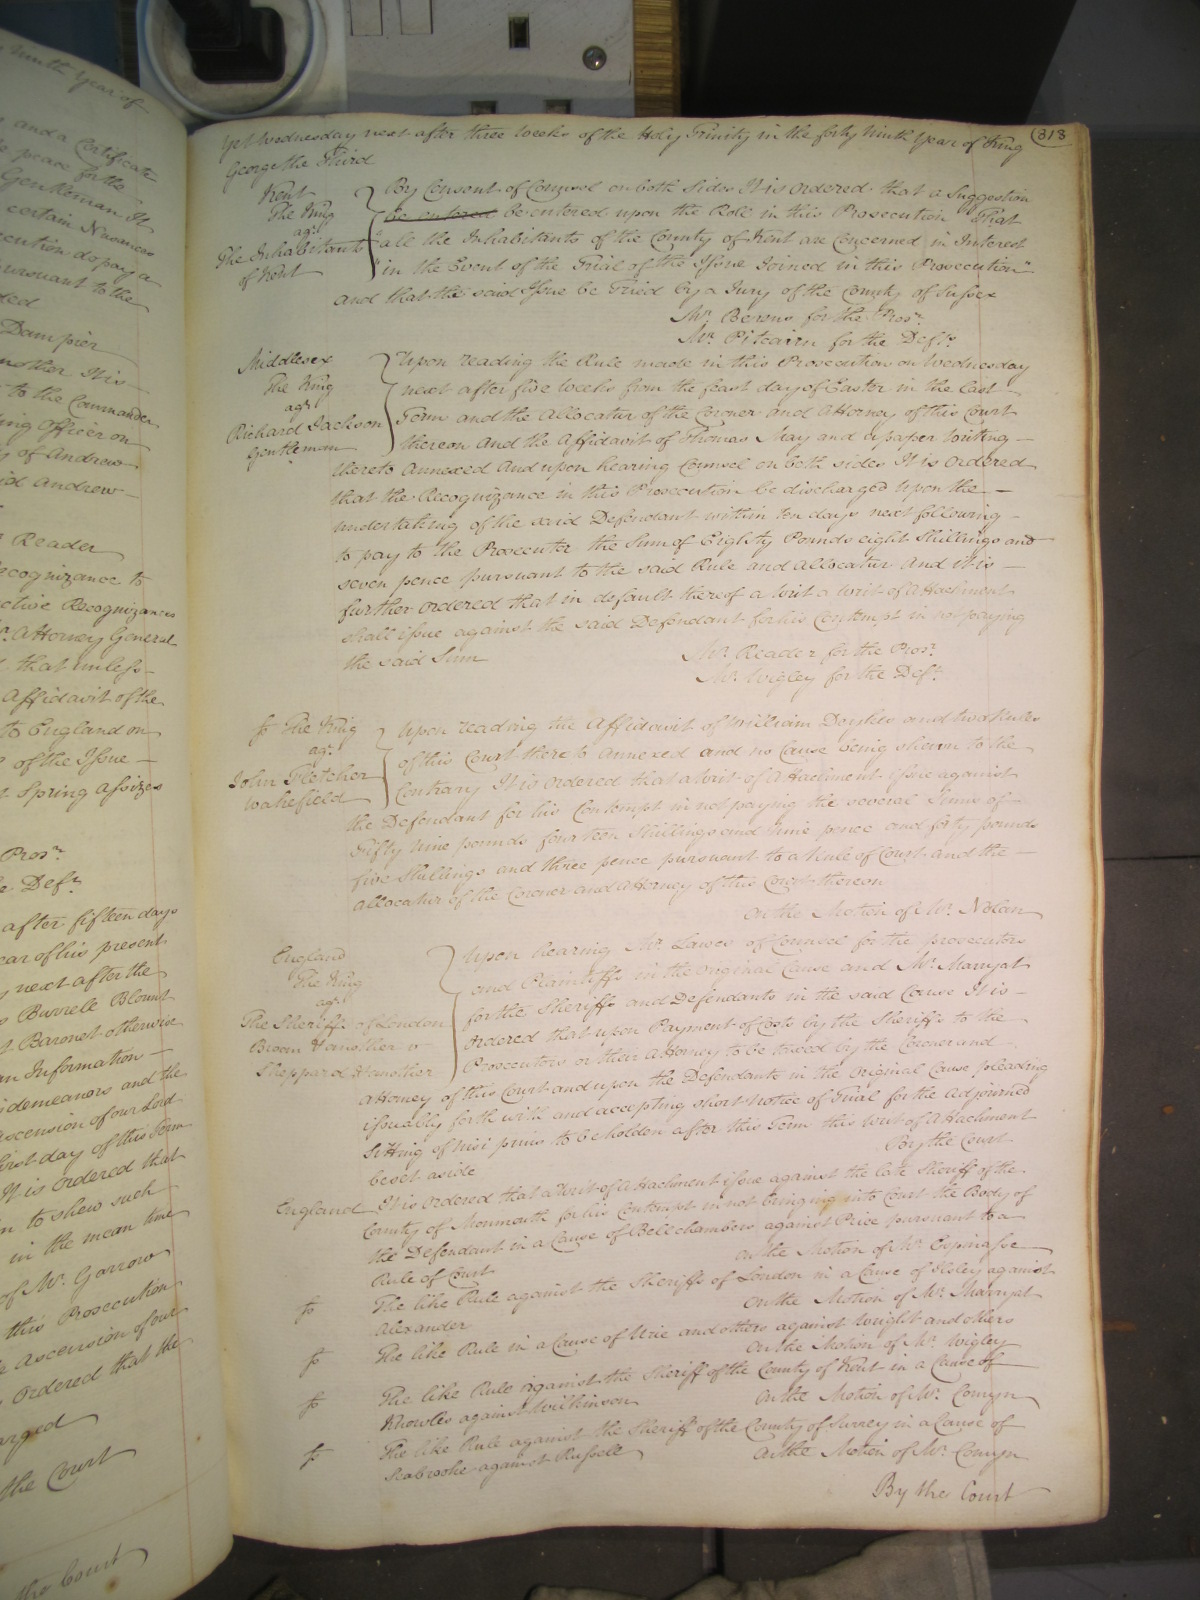 Ninth Year of
and a Certificate
peace for the
Gentleman It
certain Nusances
ecution do pay a
pursuant to the
ded
Dampier
another It is
to the Commander
ing officer on
of Andrew
id Andrew
Reader
Recognizance to
ctive Recognizances
Mr. Attorney General
that unless
Affidavit of the
to England on
of the Issue
t Spring Assizes
Prosr.
Deft.
after fifteen days
ear of his present
next after the
Burrell Blount
t Baronet otherwise
an Information
idemeanors and the
Ascension of our Lord
first day of this Term
It is ordered that
to shew such
in the mean time
of Mr. Garrow
this Prosecution
Ascension of our
ordered that the
arged
the Court
the Court
Yet Wednesday next after three Weeks of the Holy Trinity in the forty Ninth Year of King 313
George the Third
Kent
The King
agt.
The Inhabitants
of Kent
By Consent of Counsel on both sides It is ordered that a Suggestion
be entered be entered upon the Roll in this Prosecution "That
"all the Inhabitants of the County of Kent are Concerned in Interest
"in the Event of the Trial of the Issue Joined in this Prosecution"
and that the said Issue be Tried by a Jury of the County of Sussex
Mr. Berens for the Prosr.
Mr. Pitcairn for the Defts.
Middlesex
The King
agt.
Richard Jackson
Gentleman
Upon reading the Rule made in this Prosecution on Wednesday
next after five Weeks from the feast day of Easter in the last
Term and the Allocatur of the Coroner and Attorney of this Court
thereon And the Affidavit of Thomas May and a paper Writing
thereto annexed And upon hearing Counsel on both sides It is Ordered
that the Recognizance in this Prosecution be discharged Upon the
undertaking of the said Defendant within ten days next following
to pay to the Prosecutor the Sum of Eighty Pounds eight Shillings and
seven pence pursuant to the said Rule and Allocatur And it is
further ordered that in default thereof a writ a writ of Attachment
shall issue against the said Defendant for his Contempt in not paying
the said Sum
Mr. Reader for the Prosr.
Mr. Wigley for the Deft.
fo The King
agt.
John Fletcher
Wakefield
Upon reading the Affidavit of William Doyley and two Rules
of this Court thereto annexed and no Cause being shewn to the
Contrary It is ordered that a Writ of Attachment issue against
the Defendant for his Contempt in not paying the several Sums of
Fifty Nine pounds fourteen Shillings and Nine pence and forty pounds
five Shillings and three pence pursuant to a Rule of Court and the
Allocatur of the Coroner and Attorney of this Court thereon
On the Motion of Mr. Nolan
England
The King
agt.
The Sheriffs of London
Broom & another v
Sheppard & another
Upon hearing Mr. Lawes of Counsel for the prosecutors
and Plaintiffs in the Original Cause and Mr. Marryat
for the Sheriffs and Defendants in the said Cause It is
Ordered that upon Payment of Costs by the Sheriffs to the
Prosecutors or their Attorney to be taxed by the Coroner and
Attorney of this Court and upon the Defendants in the Original Cause pleading
issuably forthwith and accepting short Notice of Trial for the Adjourned
Sitting of Nisi prius to be holden after this Term this Writ of Attachment
be set aside
By the Court
England It is Ordered that a Writ of Attachment issue against the late Sheriff of the
County of Monmouth for his Contempt in not bringing into Court the Body of
the Defendant in a Cause of Bellchambers against Price pursuant to a
Rule of Court
On the Motion of Mr. Espinasse
fo The like Rule against the Sheriffs of London in a Cause of Ilsley against
Alexander
On the Motion of Mr. Marryat
fo The like Rule in a Cause of Urie and others against Wright and others
On the Motion of Mr. Wigley
fo The like Rule against the Sheriff of the County of Kent in a Cause of
Knowles against Wilkinson
On the Motion of Mr. Comyn
fo The like Rule against the Sheriff of the County of Surrey in a Cause of
Seabrooke against Russell
On the Motion of Mr. Comyn
By the Court